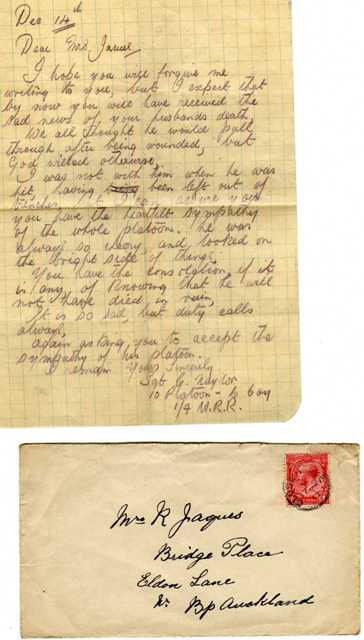 Dec 14th
Dear Mrs
I hope you will forgive me
writing to you, but I expect that
by now you will have received the
sad news of your husbands death.
We all thought he would pull
through after being wounded, but
God willed otherwise.
I was not with him when he was
hit, having been left out of
but I can assure you
you have the heartfelt sympathy
of the whole platoon. he was
always so cheery, and looked on
the bright side of things.
You have the consolation, if it
is any, of knowing that he will
not have died in vain,
It is so sad, but duty calls
always,
again asking you to accept the
sympathy of his platoon.
I remain Yours Sincerely
Sgt G. Naylor
10 Platoon - Coy
Mrs R Jaques
Bridge Place
Eldon Lane
Nr Bp Auckland